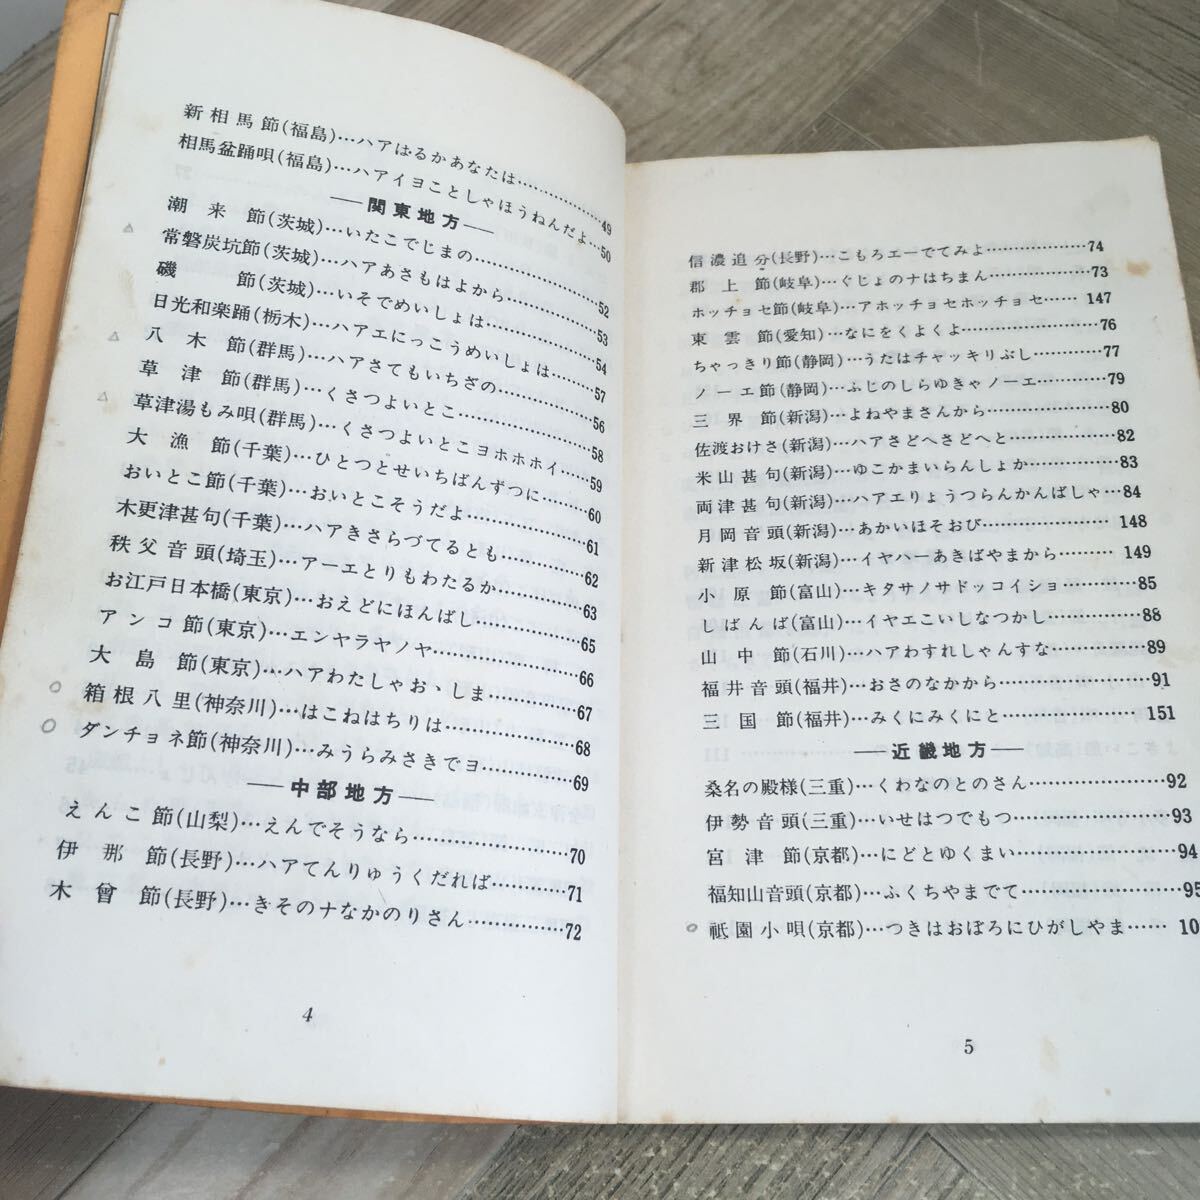 新相馬節(福島)…ハアはるかあなたは……………49
相馬盆踊唄(福島)…ハアイヨことしゃほうねんだよ…50
―関東地方―
潮来節(茨城)…いたこでじまの……………52
常磐炭坑節(茨城)…ハアあさもはよから…………53
磯節(茨城)…いそでめいしょは……………54
日光和楽踊(栃木)…ハアエにっこうめいしょは………57
八木節(群馬)…ハアさてもいちざの……………56
草津節(群馬)…くさつよいとこ……………58
草津湯もみ唄(群馬)…くさつよいとこヨホホホイ…59
大漁節(千葉)…ひとつとせいちばんずつに………60
おいとこ節(千葉)…おいとこそうだよ……………61
木更津甚句(千葉)…ハアきさらづてるとも…………62
秩父音頭(埼玉)…アーエとりもわたるか…………63
お江戸日本橋(東京)…おえどにほんばし……………65
アンコ節(東京)…エンヤラヤノヤ……………66
大島節(東京)…ハアわたしゃおゝしま…………67
箱根八里(神奈川)…はこねはちりは……………68
ダンチョネ節(神奈川)…みうらみさきでヨ…………69
―中部地方―
えんこ節(山梨)…えんでそうなら……………70
伊那節(長野)…ハアてんりゅうくだれば…………71
木曾節(長野)…きそのナなかのりさん……………72
4
信濃追分(長野)…こもろエーでてみよ……………74
郡上節(岐阜)…ぐじょのナはちまん……………73
ホッチョセ節(岐阜)…アホッチョセホッチョセ……147
東雲節(愛知)…なにをくよくよ……………76
ちゃっきり節(静岡)…うたはチャッキリぶし…………77
ノーエ節(静岡)…ふじのしらゆきゃノーエ…………79
三界節(新潟)…よねやまさんから……………80
佐渡おけさ(新潟)…ハアさどへさどへと……………82
米山甚句(新潟)…ゆこかまいらんしょか…………83
両津甚句(新潟)…ハアエりょうつらんかんばしゃ…84
月岡音頭(新潟)…あかいほそおび……………148
新津松坂(新潟)…イヤハーあきばやまから………149
小原節(富山)…キタサノサドッコイショ…………85
しばんば(富山)…イヤエこいしなつかし……………88
山中節(石川)…ハアわすれしゃんすな……………89
福井音頭(福井)…おさのなかから……………91
三国節(福井)…みくにみくにと……………151
―近畿地方―
桑名の殿様(三重)…くわなのとのさん……………92
伊勢音頭(三重)…いせはつでもつ……………93
宮津節(京都)…にどとゆくまい……………94
福知山音頭(京都)…ふくちやまでて……………95
祗園小唄(京都)…つきはおぼろにひがしやま……10
5